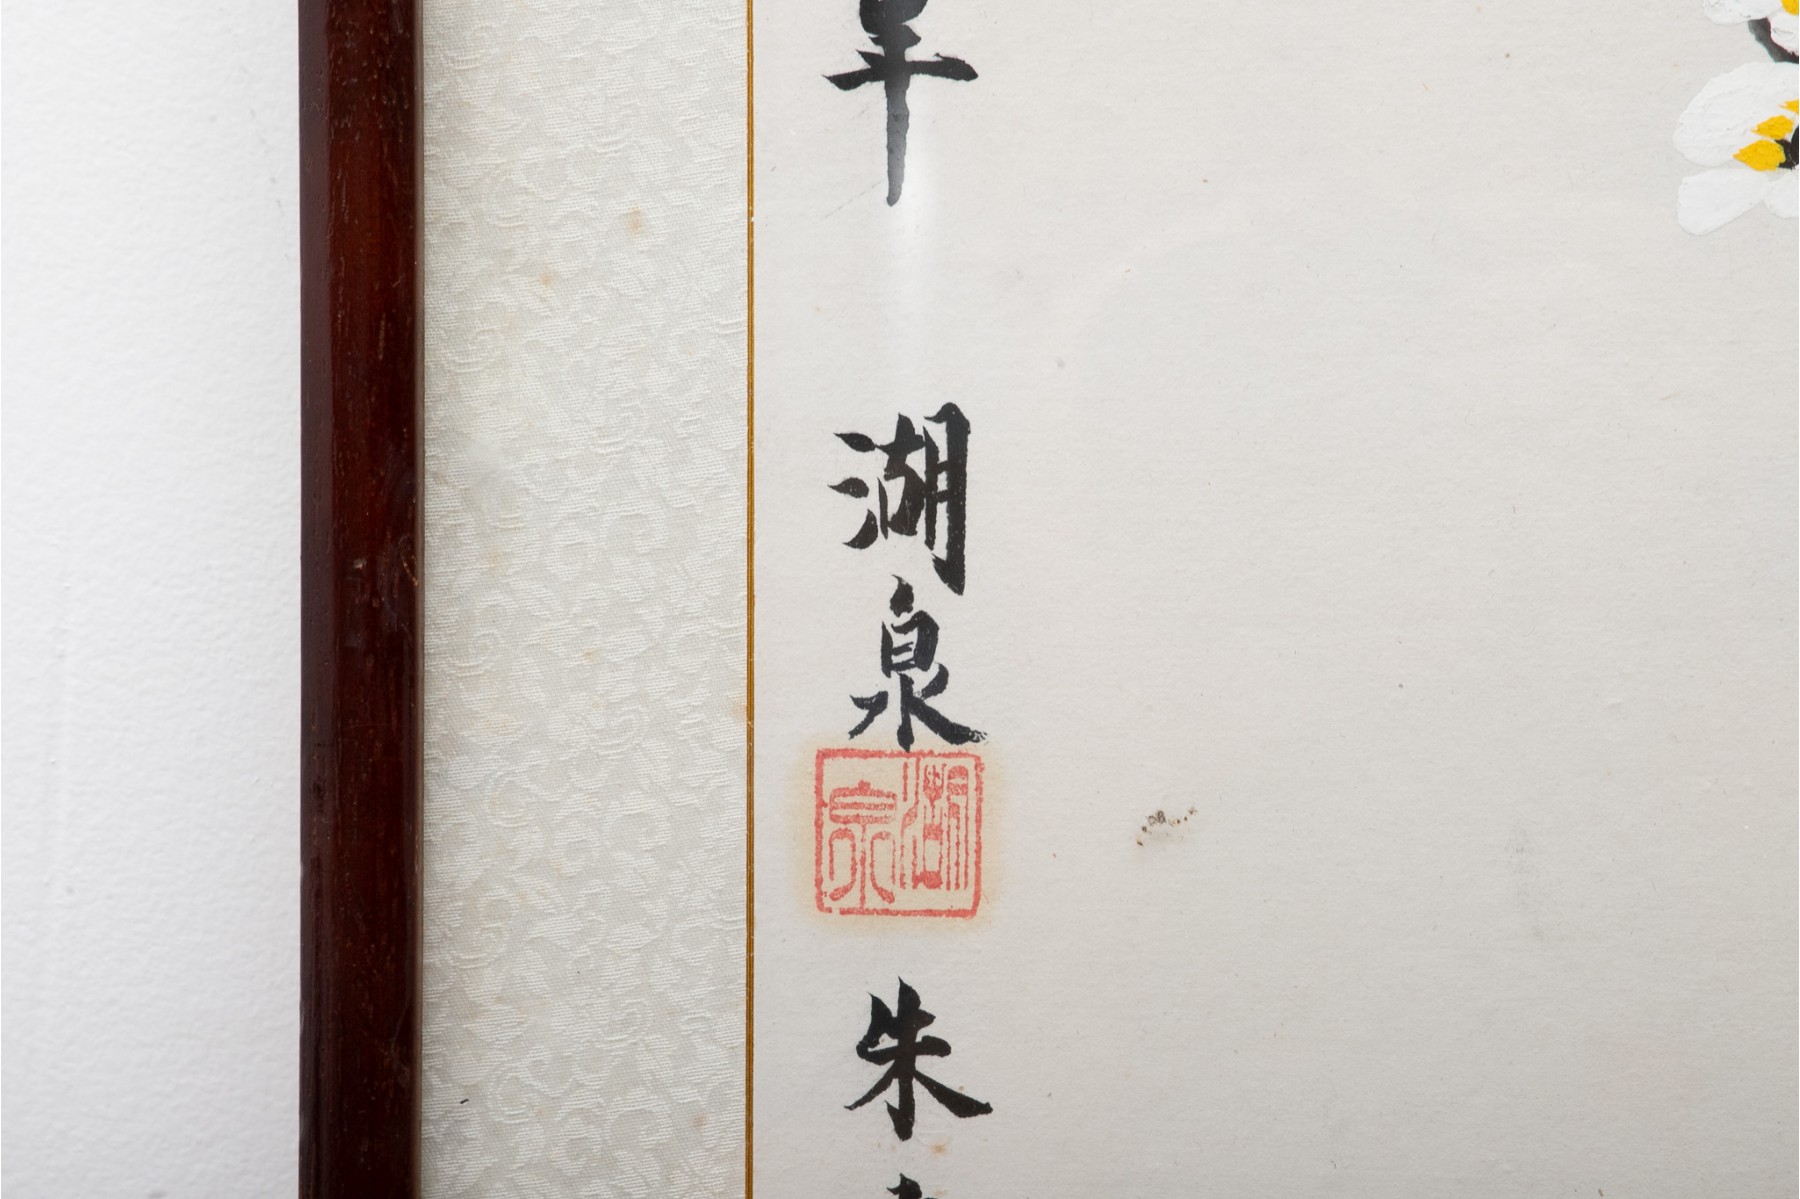 湖泉
湖泉
朱